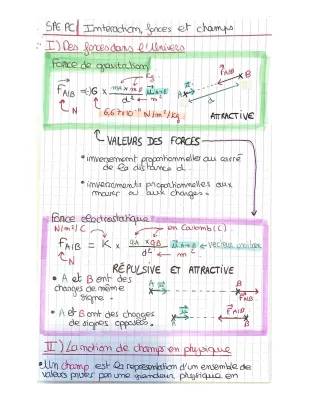 SPE PC | Interaction, forces et champs
I) Des forces dans l'Univers
Force de gravitation
Kg
F A/B = (-) G x mA x mB / d² u A→B
N
m²
6,67x10⁻¹¹ N/m²/kg
A B
F A/B
d
ATTRACTIVE
VALEURS DES FORCES
• inversement proportionnelles au carré
de la distance d.
• inversements proportionnelles aux
masses ou aux charges.
Force électrostatique
N/m²/C
en Coulomb (C)
F A/B = K x qA x qB / d² u A→B ← vecteur unitaire
N
m²
RÉPULSIVE ET ATTRACTIVE
• A et B ont des
charges de même
signe.
A u B
F A/B
• A et B ont des charges
de signes opposées.
A u B
F A/B
II) La notion de champs en physique
• Un champ est la représentation d'un ensemble de
valeurs prises par une grandeur physique en